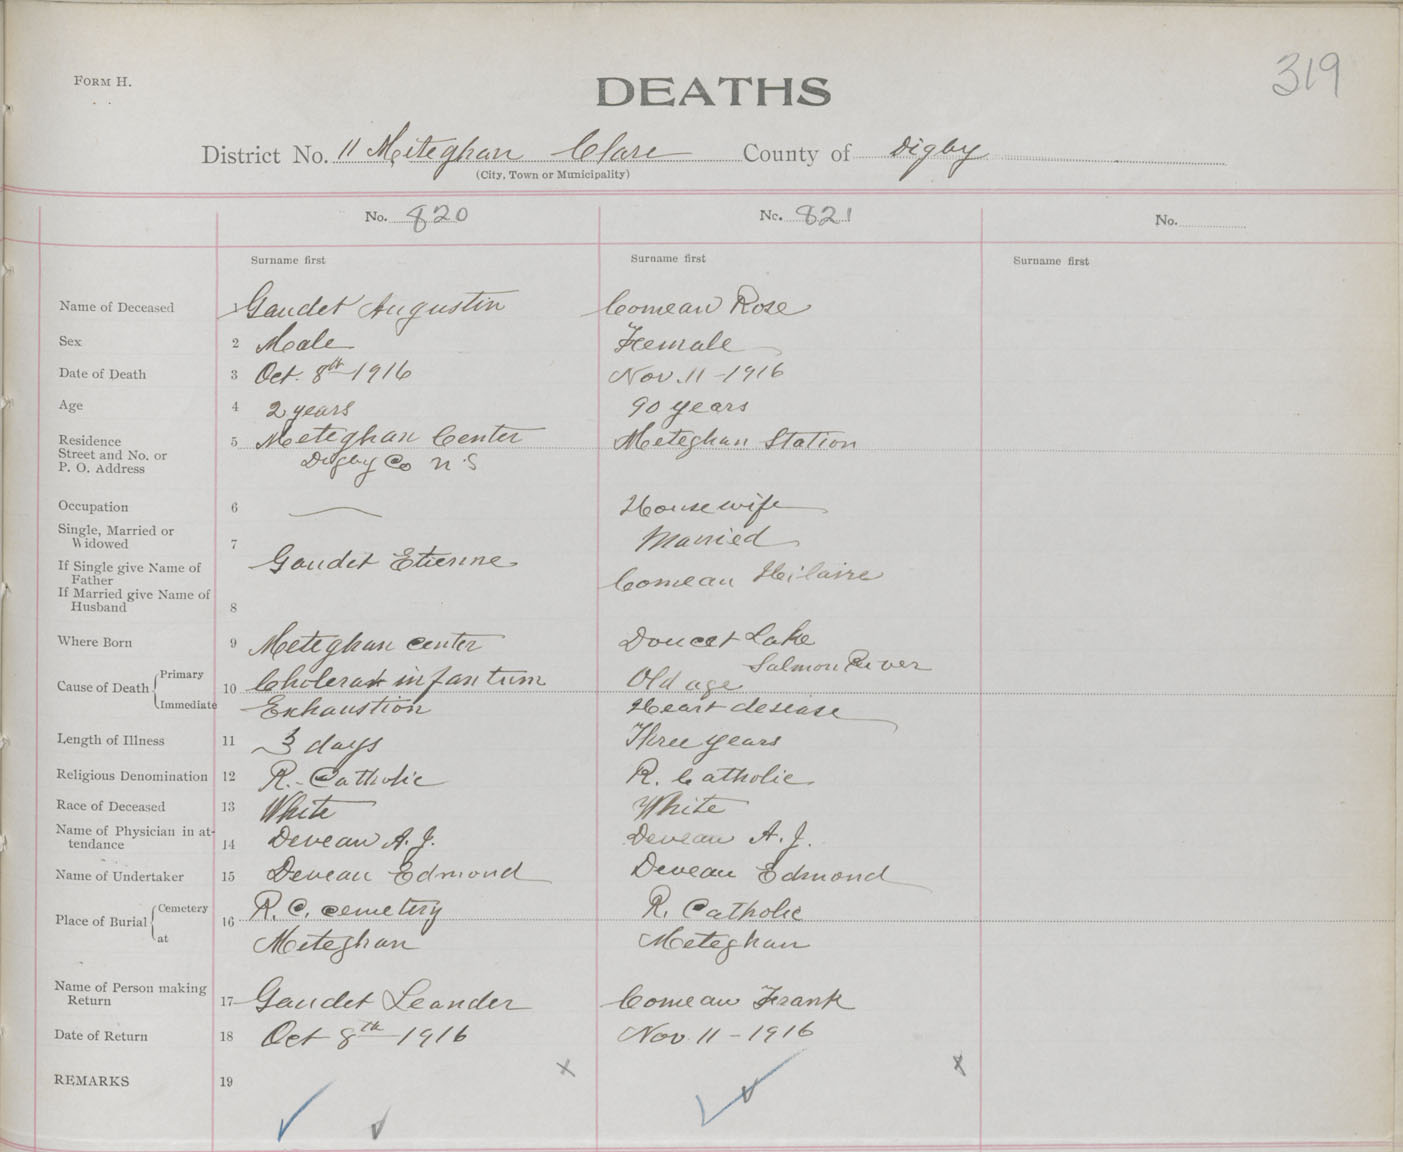 319
FORM H.
DEATHS
District No. 11 Meteghan Clare County of Digby
(City, Town or Municipality)
No. 820 No. 821 No.
Surname first Surname first Surname first
Name of Deceased 1 Gaudet Augustin Comeau Rose
Sex 2 Male Female
Date of Death 3 Oct. 8th 1916 Nov. 11 - 1916
Age 4 2 years 90 years
Residence
Street and No. or
P. O. Address
5 Meteghan Center Meteghan Station
Digby Co N.S
Occupation 6 — Housewife
Single, Married or
Widowed
7 Married
If Single give Name of
Father
Gaudet Etienne Comeau Hilaire
If Married give Name of
Husband
8
Where Born 9 Meteghan center Doucet Lake
Salmon River
Cause of Death Primary 10 Cholera infantum Old age
Immediate Exhaustion Heart desease
Length of Illness 11 3 days Three years
Religious Denomination 12 R. Catholic R. Catholic
Race of Deceased 13 White White
Name of Physician in at-
tendance
14 Deveau A. J. Deveau A. J.
Name of Undertaker 15 Deveau Edmond Deveau Edmond
Place of Burial Cemetery 16 R. C. cemetery R. Catholic
at Meteghan Meteghan
Name of Person making
Return
17 Gaudet Leander Comeau Frank
Date of Return 18 Oct 8th - 1916 Nov. 11 - 1916
REMARKS 19